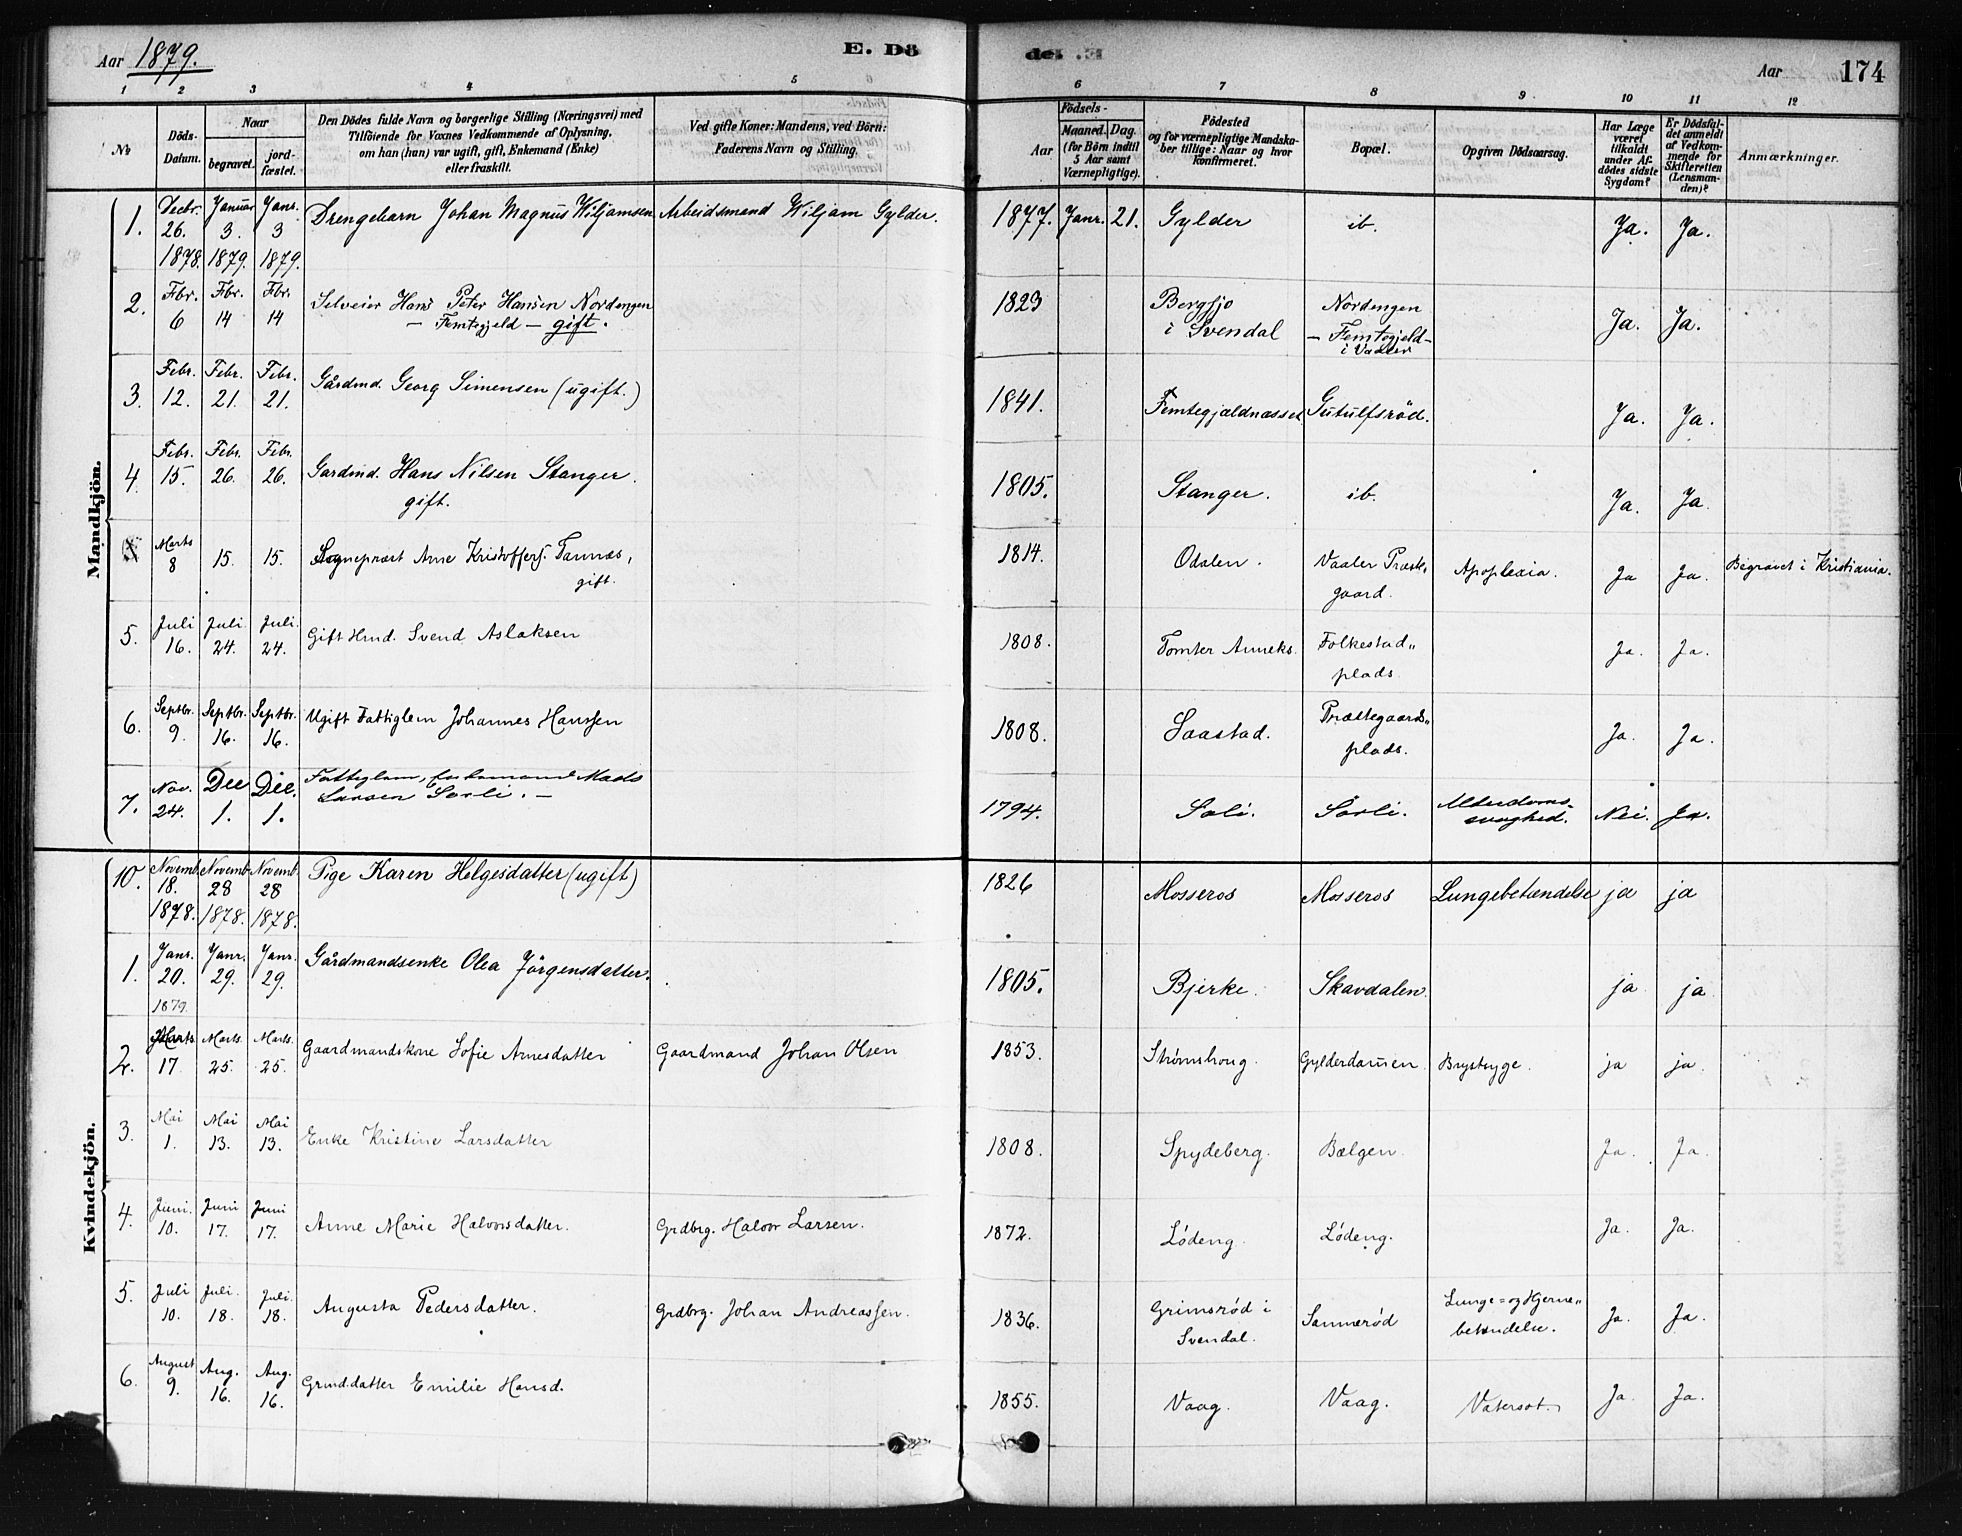 Aar 1879. E. Dö de. Aar 174
1 2 3 4 5 6 7 8 9 10 11 12
No
Döds-Datum.
Naar
begravet. jordfæstet.
Den Dödes fulde Navn og borgerlige Stilling (Næringsvei) med
Tilföiende for Voxnes Vedkommende af Oplysning,
om han (hun) var ugift, gift, Enkemand (Enke)
eller fraskilt.
Ved gifte Koner: Mandens, ved Börn:
Faderens Navn og Stilling.
Födsels-
Aar Maaned. Dag.
(for Börn indtil
5 Aar samt
Værnepligtige).
Födested
og for værnepligtige Mandska-
ber tillige: Naar og hvor
Konfirmeret.
Bopæl.
Opgiven Dödsaarsag.
Har Læge
været
tilkaldt
under Af-
dödes sidste
Sygdom?
Er Dödsfal-
det anmeldt
af Vedkom-
mende for
Skifteretten
(Lensman-
den)?
Anmærkninger.
Mandkjön.
1. Decbr. 26. 1878. Januar 3. 1879. Janr. 3 1879. Drengebarn Johan Magnus Wiljamsen Arbeidsmand Wiljam Gylder. 1877. Janr. 21. Gylder ib. Ja. Ja.
2. Fbr. 6 Fbr. 14 Fbr. 14 Selveier Hans Peter Hansen Nordengen
– Femtegjeld – gift. 1823 Bergsjø
i Svendal Nordengen
– Femtegjeld –
i Vaaler Ja. Ja.
3. Febr. 12. Febr. 21. Febr. 21. Gårdmd. Georg Simensen (ugift.) 1841. Femtegjældnæsset Gutulfsröd. Ja. Ja.
4. Febr. 15. Febr. 26. Febr. 26. Gardmd. Hans Nilsen Stanger.
gift. 1805. Stanger. ib. Ja. Ja
Marts 8 15. 15. Sognepræst Arne Kristoffers. Fannæs,
gift. 1814. Odalen. Vaaler Præste-
gaard. Apoplexia. Ja Ja. Begravet i Kristiania.
5. Juli 16. Juli 24. Juli 24. Gift Hmd. Svend Aslaksen 1808. Tomter Anneks. Folkestad"
plads. Ja. Ja.
6. Septbr. 9. Septbr. 16. Septbr. 16. Ugift Fattiglem Johannes Hanssen 1808. Saastad. Præstegaards"
plads. Ja. Ja.
7. Nov. 24. Dec 1. Dec. 1. Fattiglem, Enkemand Mads
Larsen Sørli. – 1794. Soli. Sørli. Alderdoms-
svaghed. Nei. Ja.
Kvindekjön.
10. Novemb. 18. 1878. Novemb. 28 1878. Novemb. 28 1878. Pige Karen Helgesdatter (ugift) 1826 Mosseros Mosseros Lungebetændelse ja ja
1. Janr. 20. 1879. Janr. 29. Janr. 29. Gårdmandsenke Olea Jörgensdatter. 1805. Bjerke. Skavdalen. ja ja
2. Marts. 17. Marts. 25. Marts. 25. Gaardmandskone Sofie Arnesdatter Gaardmand Johan Olsen 1853. Strømshaug Gylderdamen Brystsyge. ja ja.
3. Mai 1. Mai 13. Mai 13. Enke Kristine Larsdatter 1808. Spydeberg. Bælgen. Ja. Ja.
4. Juni. 10. Juni 17. Juni 17. Anne Marie Halvorsdatter. Grdbrg. Halvor Larsen. 1872. Lódeng. Lódeng. Ja. Ja.
5. Juli 10. Juli. 18. Juli. 18. Augusta Pedersdatter. Grdbrg. Johan Andreassen. 1836. Grimsród i
Svendal. Sannerød Lunge = og Hjerne"
betændelse. Ja. Ja.
6. August 9. Aug. 16. Aug. 16. Grmd.datter Emilie Hansd. 1855. Vaag. Vaag. Vatersot. Ja. Ja.